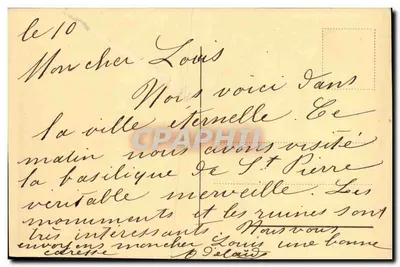 le 10
Mon cher Louis
Nous voici dans
la ville éternelle. Ce
matin nous avons visité
la basilique de St Pierre
veritable merveille. Les
monuments et les ruines sont
très interessants. Nous vous
envoyons mon cher Louis une bonne
caresse
CPARAMA